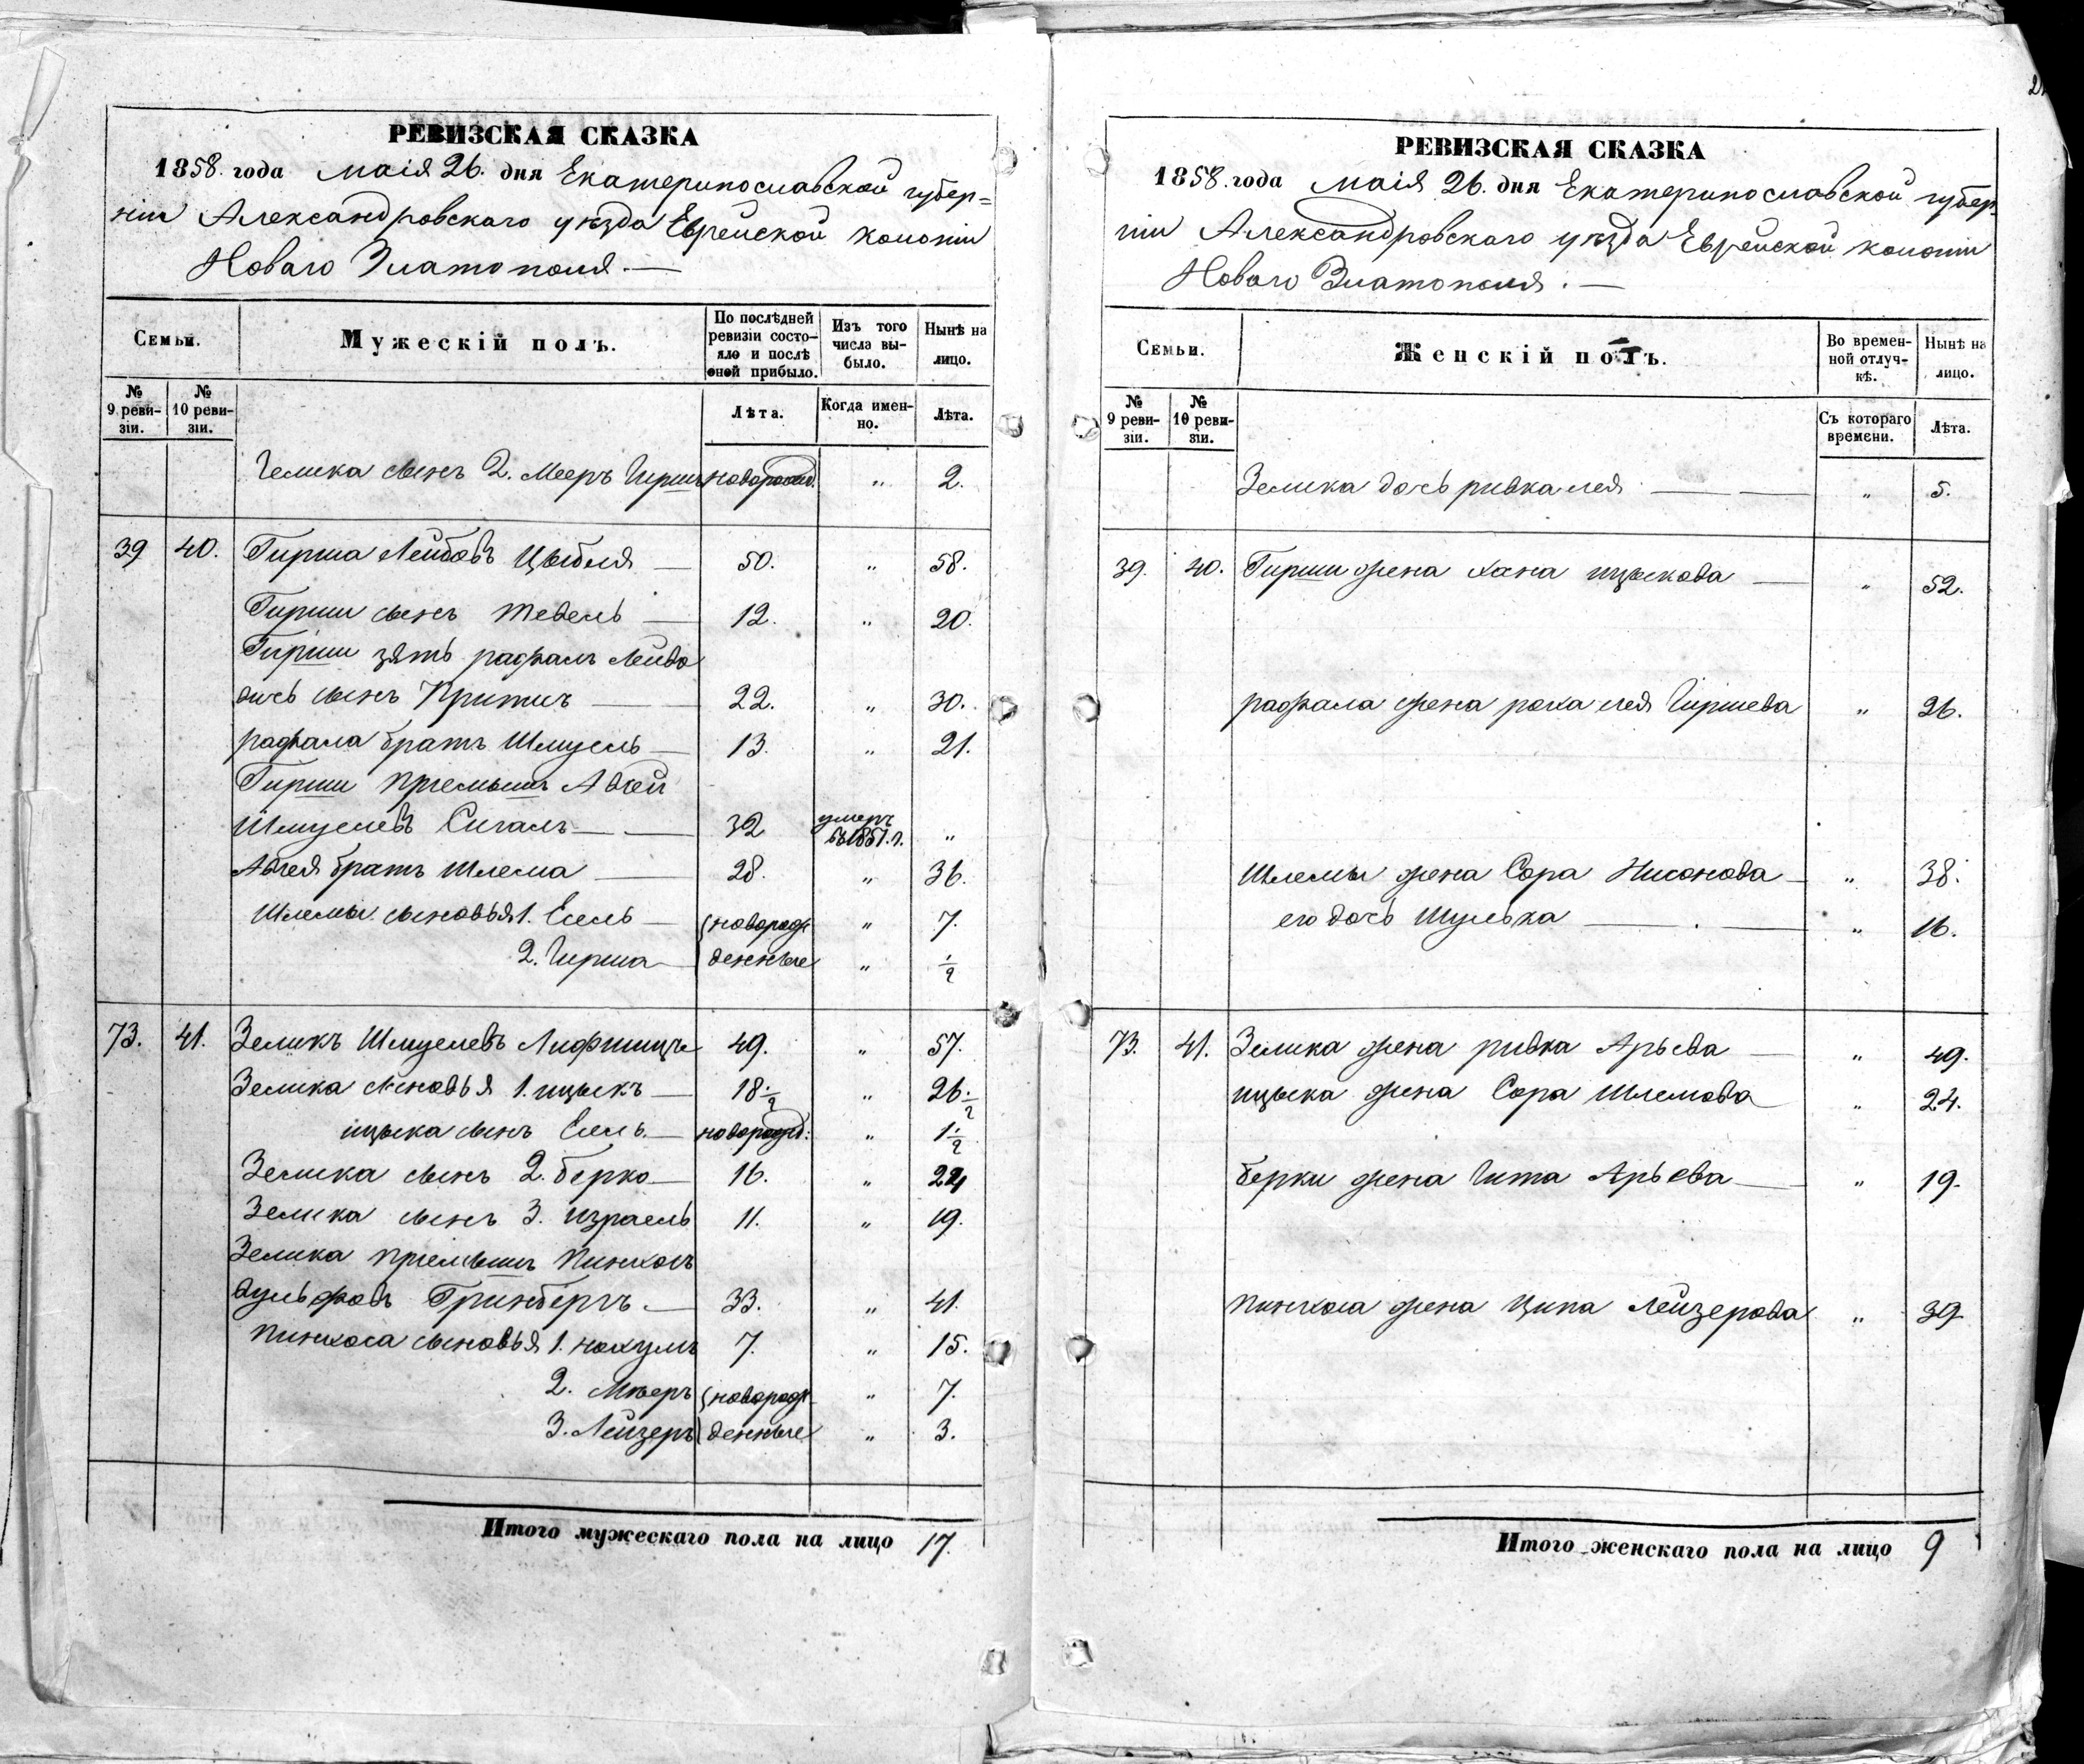 РЕВИЗСКАЯ СКАЗКА
1858. года маія 26. дня Екатеринославской губер=
ніи Александровскаго уѣзда Еврейской колоніи
Новаго Златополя.—
Семьи.
Мужескій полъ.
По послѣдней ревизіи состояло и послѣ оной прибыло.
Изъ того числа выбыло.
Нынѣ на лицо.
№ 9 ревизіи.
№ 10 ревизіи.
Лѣта.
Когда именно.
Лѣта.
сынъ 2. Мееръ Гиршъ новорожд. " 2.
39 40. Гирша Лейбовъ Цыбля — 50. " 58.
Гирши сынъ Тевель — 12. " 20.
Гирши зять рафаль
сынъ — 22. " 30.
рафала братъ Шмуель — 13. " 21.
Гирши пріемышъ Авгей
Шмулевъ Сигалъ — 32 умеръ въ 1851. г. "
Авгея братъ Шлема — 28. " 36.
Шлемы сыновья 1. Есель — новорож " 7.
2. Гирша — денные " ½
73. 41. Зеликъ Шмулевъ Лифшицъ 49. " 57.
Зелика сыновья 1. ицыкъ — 18½ " 26½
ицыка сынъ Есель — новорожд: " 1½
Зелика сынъ 2. берко — 16. " 24
Зелика сынъ 3. израель 11. " 19.
Зелика пріемышъ Пинхосъ
вульфовъ Гринбергъ. — 33. " 41.
Пинхоса сыновья 1. нохумъ 7. " 15.
2. Мееръ новорож " 7.
3. Лейзеръ денные " 3.
Итого мужескаго пола на лицо 17.
РЕВИЗСКАЯ СКАЗКА
1858. года маія 26. дня Екатеринославской губер-
ніи Александровскаго уѣзда Еврейской колоніи
Новаго Златополя. —
Семьи.
Женскій полъ.
Во временной отлучкѣ.
Нынѣ на лицо.
№ 9 ревизіи.
№ 10 ревизіи.
Съ котораго времени.
Лѣта.
Зелика дочь ривка лея — " 5.
39. 40. Гирши жена хана ицыкова — " 52.
рафала жена роха лея Гиршева " 26.
Шлемы жена Сора — " 38.
его дочь Шулька — " 16.
73. 41. Зелика жена ривка Арьева — " 49.
ицыка жена Сора Шлемова " 24.
берки жена Гита Арьева — " 19.
Пинхоса жена Ципа Лейзерова " 39
Итого женскаго пола на лицо 9